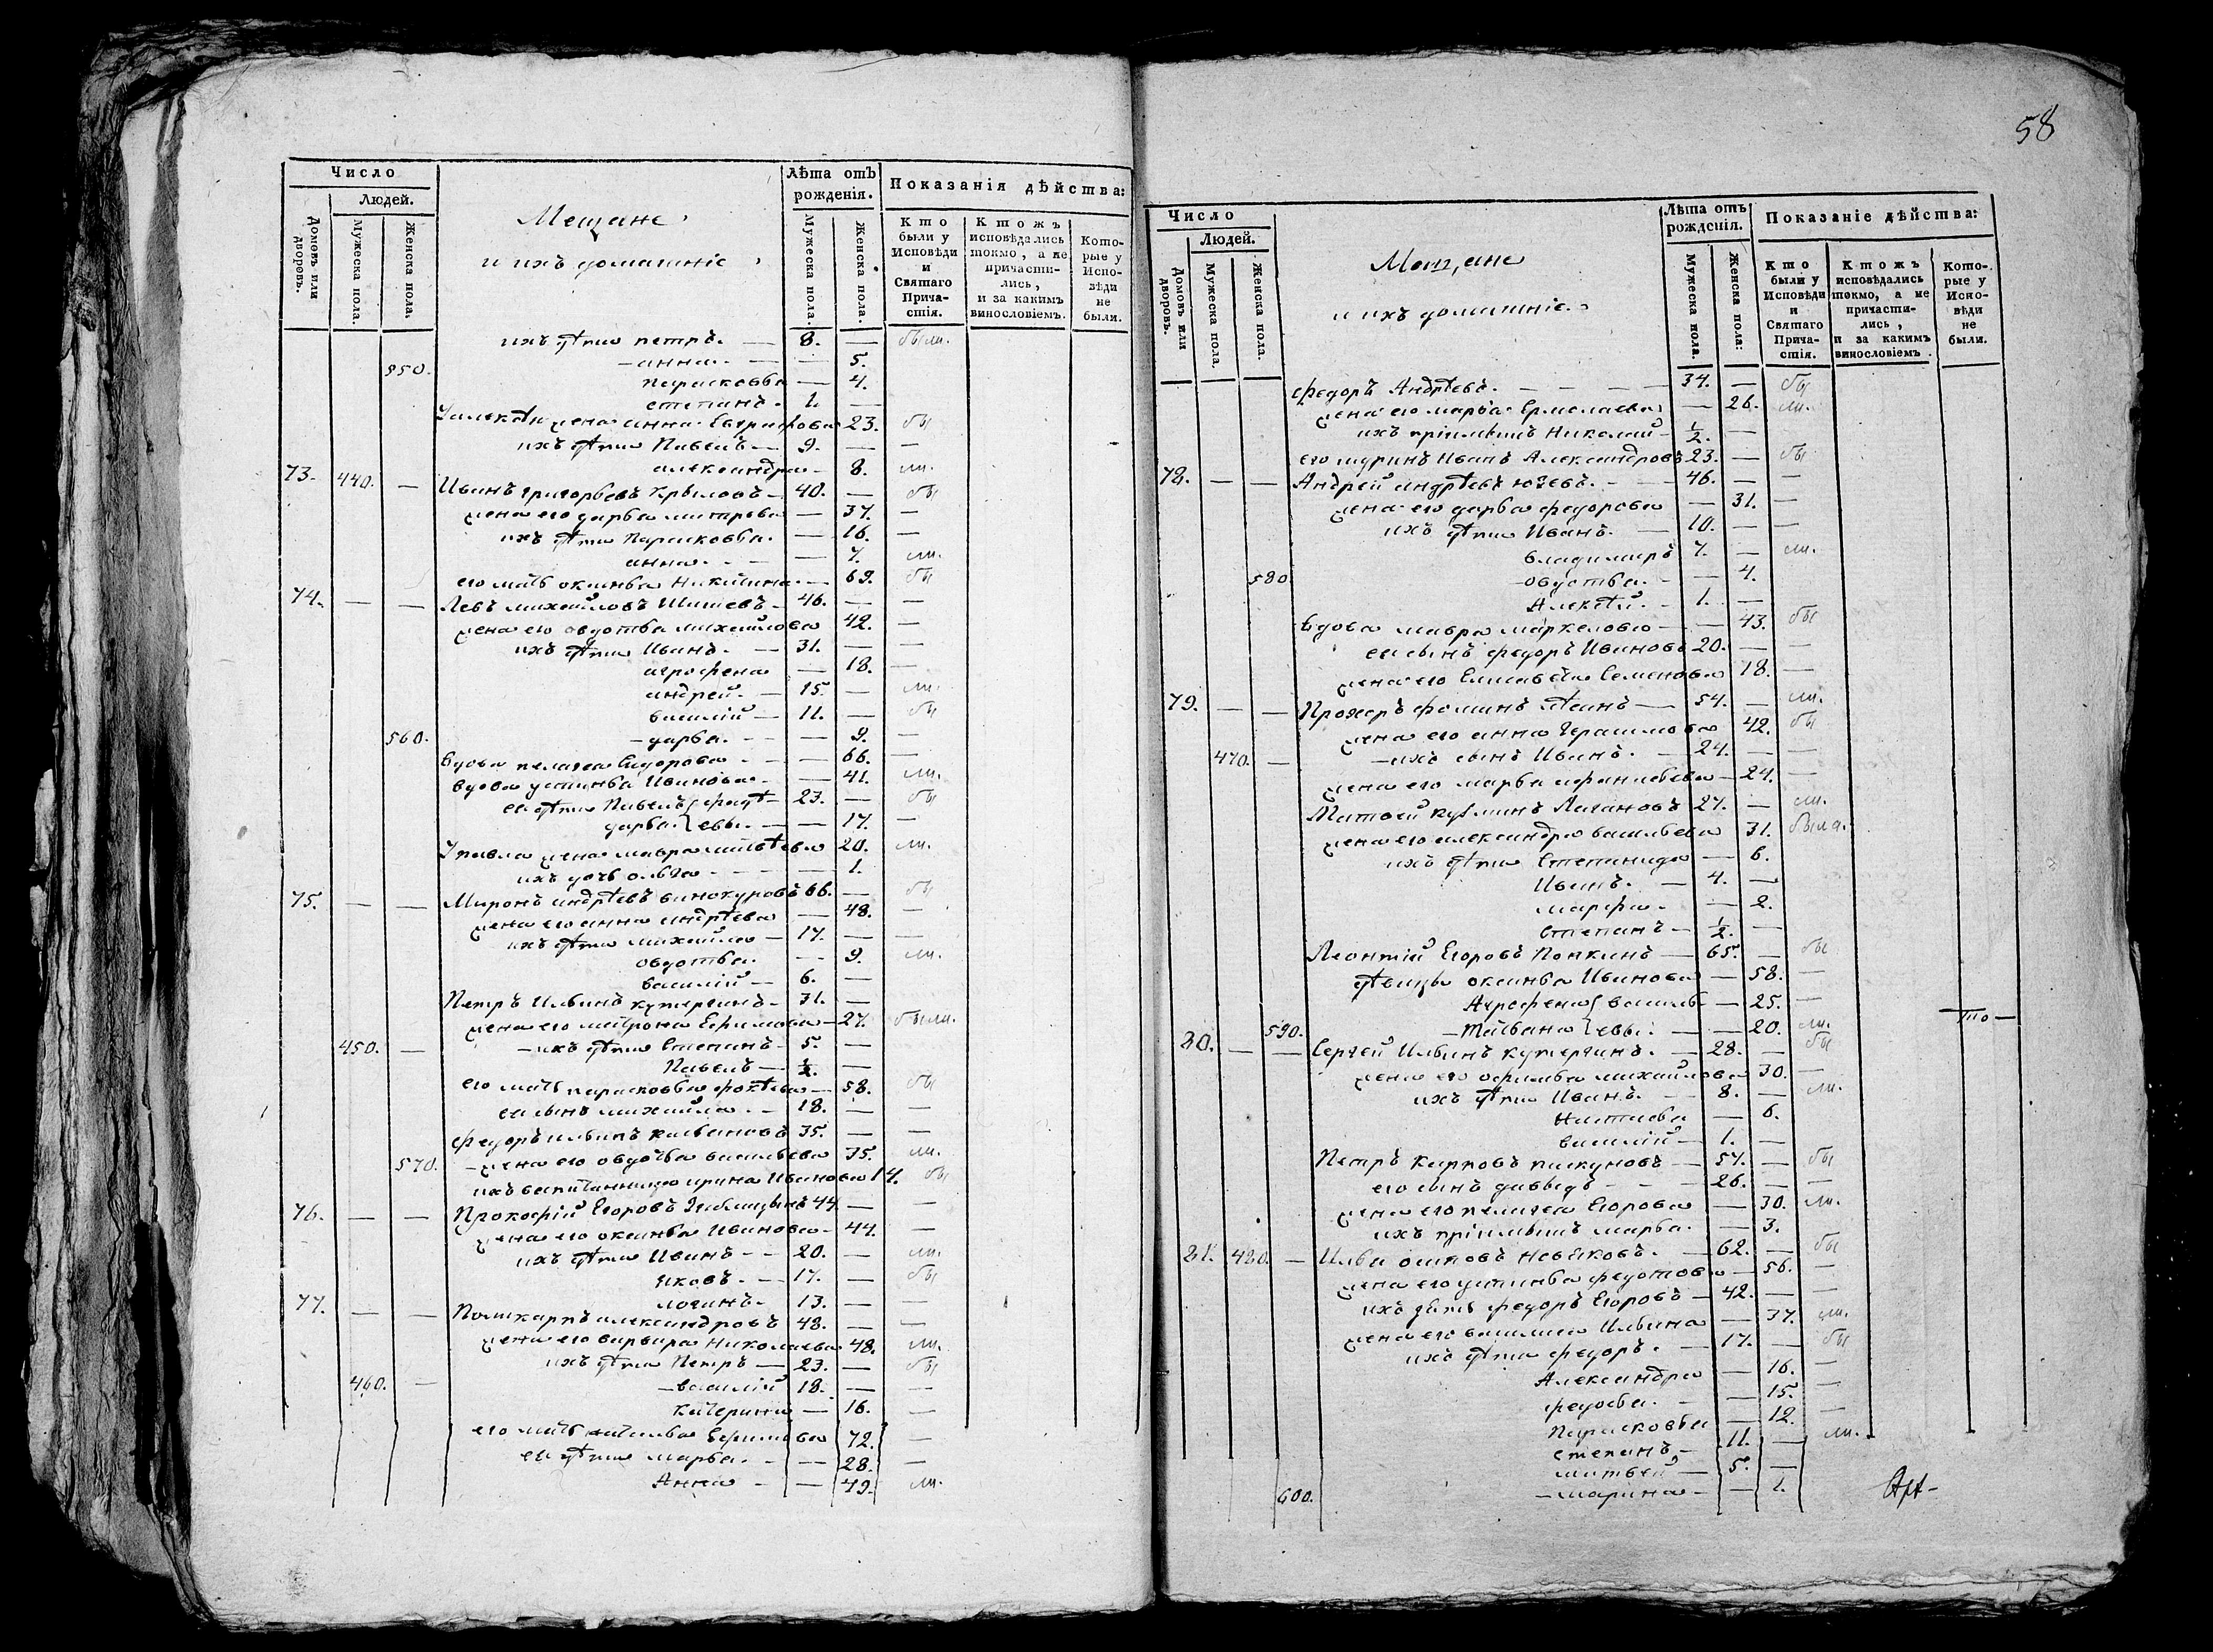 Число
Людей.
Домовъ или дворовъ.
Мужеска пола.
Женска пола.
Мещане
и ихъ домашніе
Лѣта отъ рожденія.
Мужеска пола.
Женска пола.
Показанія дѣйства:
Кто были у Исповѣди и Святаго Причастія.
Ктожъ исповѣдались токмо, а не причастились, и за какимъ винословіемъ.
Которые у Исповѣди не были.
ихъ дѣти петръ. — 8. — были.
— анна. — — 5.
950. парасковья — 4.
степанъ. 1. —
У алексѣя жена анна Евграфова 23. бы
ихъ дѣти Павелъ — 9. — —
александра — 8. ли.
73. 440. — Иванъ григорьевъ Крыловъ — 40. — бы
жена его дарья митрева — 37. —
ихъ дѣти Парасковья. — 16. —
анна. — 7. ли.
его мать оксинья Никитина. — 69. бы
74. — — Левъ михайловъ Шишевъ — 46. — —
жена его овдотья михайлова 42. —
ихъ дѣти Иванъ. — 31. — —
агрофена — 18. —
андрей. — 15. — ли.
василій — 11. — бы
560. — дарья. — — 9. —
вдова пелагея Сидорова — — 66. —
вдова устинья Иванова. — 41. ли.
ея дѣти Павелъ — 23. — бы
дарья. — — 17. —
У павла жена мавра матвѣева 20. ли.
ихъ дочь ольга — — 1.
75. — — Миронъ андрѣевъ винокуровъ 66. — бы
жена его анна андрѣева — 48. —
ихъ дѣти михайла — 17. — —
овдотья. — 9. ли.
василій — 6. —
Петръ Ильинъ кутергинъ — 31. —
жена его матрона Ефимова — 27. были.
450. — — ихъ дѣти Степанъ — 5. —
Павелъ — ½. —
его мать парасковья фокѣева — 58. бы
ея сынъ михайла. — 18. — —
федоръ ильинъ 35. — —
570. — жена его овдотья васильева 35. ли.
ихъ воспитанница ирина Иванова 14. бы
76. — — Прокофій Егоровъ 44. — —
жена его оксинья Иванова — 44. —
ихъ дѣти Иванъ — — 20. — ли.
яковъ. — 17. — бы
логинъ — 13. — —
77. — — Поликарпъ александровъ 48. — —
жена его варвара николаева 48. ли.
ихъ дѣти Петръ — 23. — бы
460. — — василій 18. — —
катерина — 16. —
его мать Ефимова 72. —
ея дѣти марья. — — 28. —
Анна — — 49. ли.
58
Число
Людей.
Домовъ или дворовъ.
Мужеска пола.
Женска пола.
Мещане
и ихъ домашніе.
Лѣта отъ рожденія.
Мужеска пола.
Женска пола:
Показаніе дѣйства:
Кто были у Исповѣди и Святаго Причастія.
Ктожъ исповѣдались токмо, а не причастились, и за какимъ винословіемъ.
Которые у Исповѣди не были.
федоръ Андрѣевъ. — — — 34. — бы
жена его марья Ермолаева — 26. ли.
ихъ пріимышъ Николай — ½. —
его шуринъ Иванъ Александровъ 23. — бы
78. — — Андрей андрѣевъ — 46. — —
жена его дарья федорова — 31. —
ихъ дѣти Иванъ. — 10. — —
владимиръ 7. — ли.
580. — овдотья. — — 4.
Алексѣй. — 1. —
вдова мавра маркелова — — 43. бы
ея сынъ федоръ Ивановъ 20. — —
жена его Елисавета Семенова 18. —
79. — — Прохоръ фоминъ — 54. — ли.
жена его анна Герасимова 42. бы
470. — — ихъ сынъ Иванъ. — 24. — —
жена его марья афанасьева — 24. —
Матвей кузминъ 27. — ли.
жена его александра васильева 31. была.
ихъ дѣти Степанида — 6.
Иванъ. — 4. —
марфа. — — 2.
степанъ — ½. —
Леонтій Егоровъ Попкинъ — 65. — бы
дѣвицы оксинья Иванова — 58. —
Агрофена васильевы. — 25. —
590. — татьяна — — 20. ли.
то —
80. — — Сергей Ильинъ кутергинъ. — 28. — бы
жена его офимья михайлова 30. —
ихъ дѣти Иванъ. — 8. — ли.
настасья — 6.
василій — 1. —
Петръ Карповъ пискуновъ — 57. — бы
его сынъ давыдъ — — 26. — —
жена его пелагея Егорова — 30. ли.
ихъ пріимышъ марья. — 3. —
81. 480. — Илья осиповъ Новяковъ. — 62. — бы
жена его устинья федотова — 56. —
ихъ зять федоръ Егоровъ — 42. — —
жена его василиса Ильина — 37. ли.
ихъ дѣти федоръ. — 17. — бы
Александра — 16. —
федосья. — — 15. —
Парасковья — 12. —
степанъ — 11. — ли.
матвей — 5. —
600. — марина — — 1.
Арт-